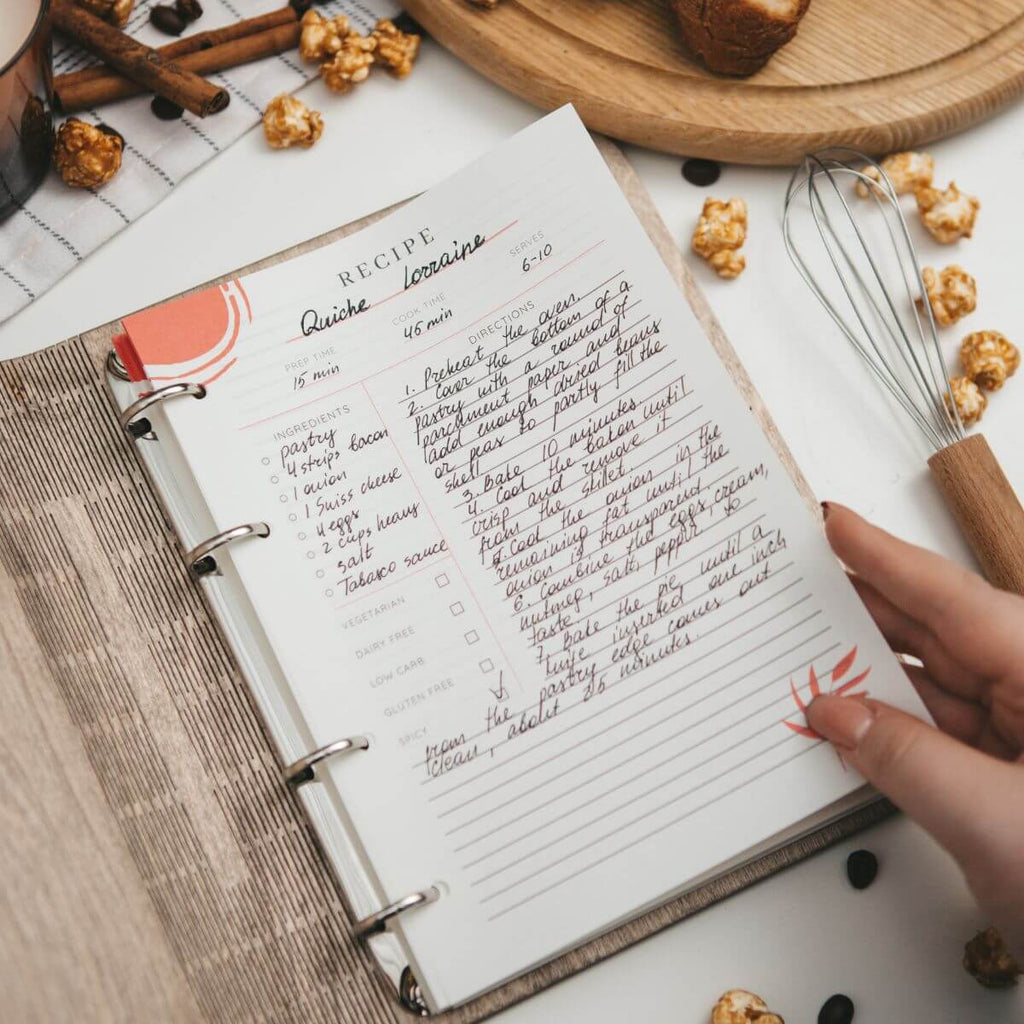 RECIPE
Quiche Lorraine
PREP TIME
15 min
COOK TIME
45 min
SERVES
6-10
INGREDIENTS
pastry
4 strips bacon
1 onion
1 Swiss cheese
4 eggs
2 cups heavy
salt
Tabasco sauce
VEGETARIAN
DAIRY FREE
LOW CARB
GLUTEN FREE
SPICY
DIRECTIONS
1. Preheat the oven.
2. Cover the bottom of a
pastry with a round of
parchment paper and
add enough dried beans
or peas to partly fill the
shell
3. Bake 10 minutes.
4. Cool the bacon until
crisp and remove it
from the skillet.
5. Cool the onion in the
remaining fat until the
onion is transparent.
6. Combine the eggs, cream,
nutmeg, salt, pepper to
taste.
7. Bake the pie until a
knife inserted one inch
the pastry edge comes out
from
clean, about 25 minutes.